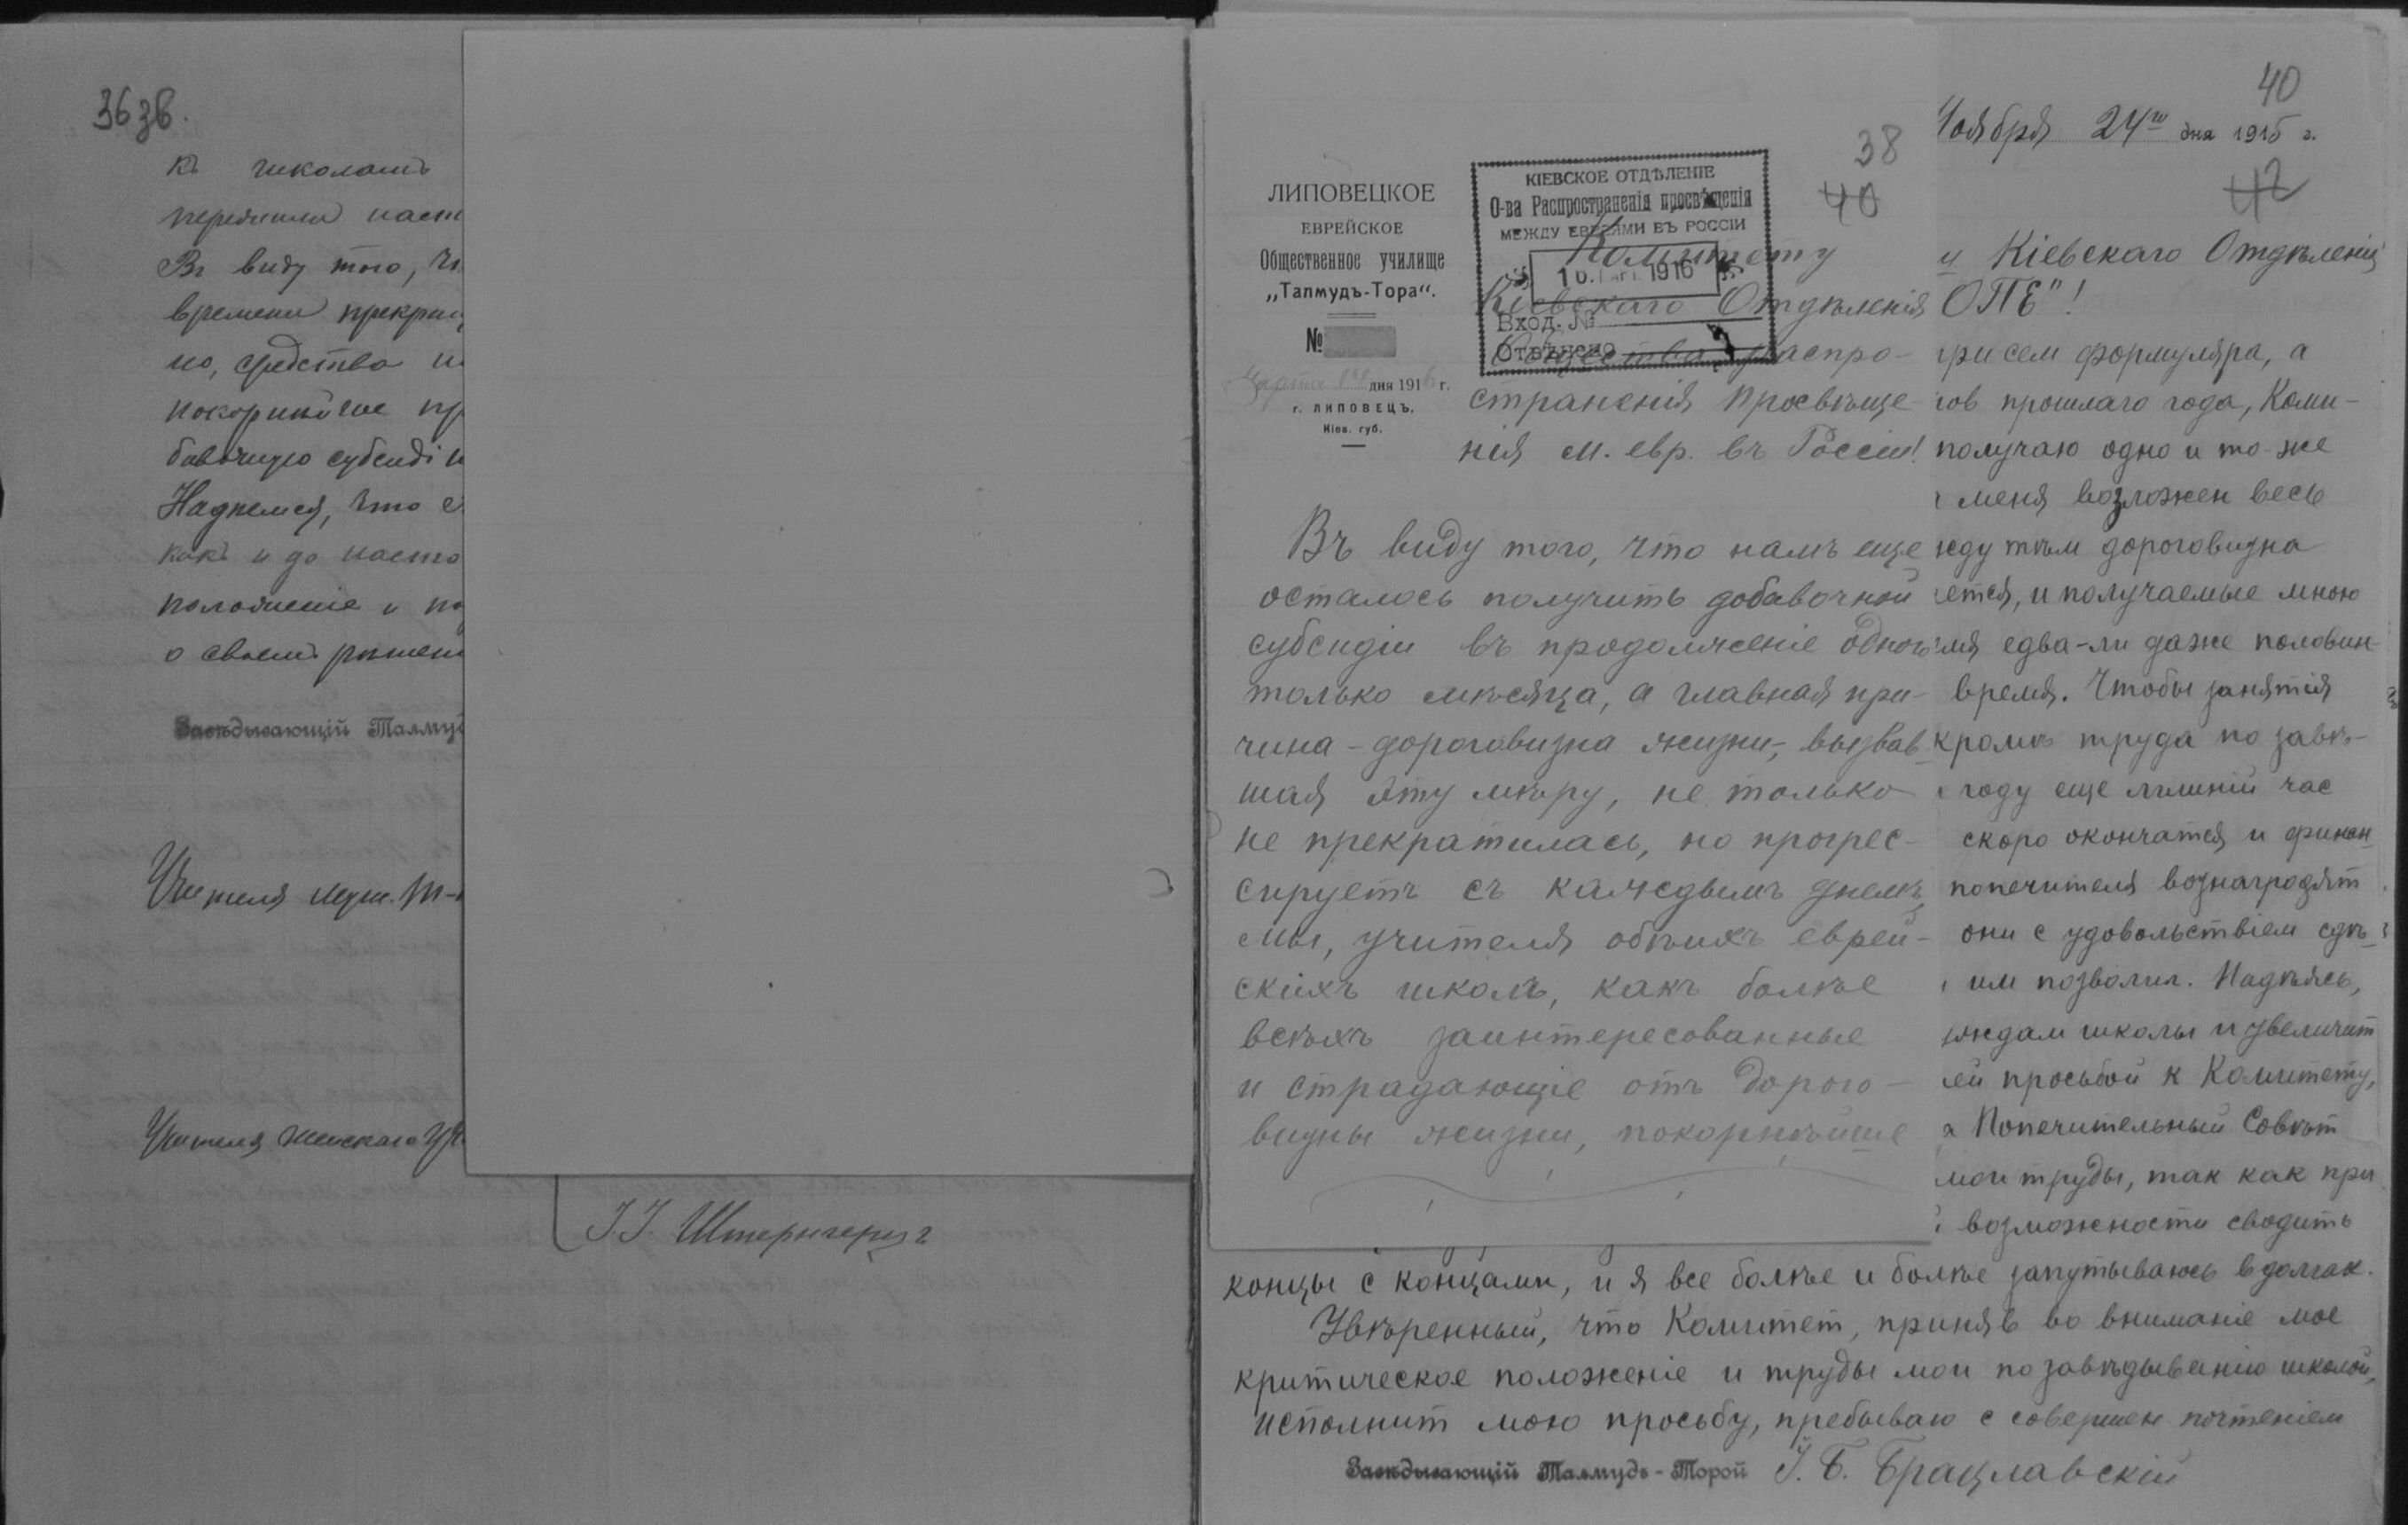 36 зв.
къ школамъ
пережили наст
Въ виду того, чт
времени прекращ
но, средства
покорнѣйше пр
бавочную субсидію
Надѣемся, что
какъ и до насто
положеніе и
о своемъ рѣшен
Завѣдывающій Талмуд
Учителя муж. Т-
Учителя женскаго
І. І. Штернгерцъ
40
38
40
42
ЛИПОВЕЦКОЕ
ЕВРЕЙСКОЕ
Общественное училище
„Талмудъ-Тора“.
№
Марта 14 дня 1916 г.
г. ЛИПОВЕЦЪ.
Кіев. губ.
КІЕВСКОЕ ОТДѢЛЕНІЕ
О-ва Распространенія просвѣщенія
МЕЖДУ ЕВРЕЯМИ ВЪ РОССІИ
1916
Вход. №
Отвѣчено
Комитету
Кіевскаго Отдѣленія
Общества распро-
страненія Просвѣще-
нія м. евр. въ Россіи!
Въ виду того, что намъ еще
осталось получить добавочной
субсидіи въ продолженіе одного
только мѣсяца, а главная при-
чина - дороговизна жизни, вызвав-
шая эту мѣру, не только
не прекратилась, но прогрес-
сируетъ съ каждымъ днемъ,
мы, учителя обѣихъ еврей-
скихъ школъ, какъ болѣе
всѣхъ заинтересованные
и страдающіе отъ дорого-
визны жизни, покорнѣйше
Ноября 24го дня 1915 г.
и Кіевскаго Отдѣленія
ОПЕ"!
при сем формуляра, а
гов прошлаго года, Коми-
получаю одно и то-же
меня возложен весь
жду тѣм дороговизна
ется, и получаемые мною
мя едва-ли даже половин-
время. Чтобы занятія
кромѣ труда по завѣ-
году еще лишній час
скоро окончатся и финан
попечителя вознаградят
они с удовольствіем сдѣ-
им позволил. Надѣясь,
ждам школы и увеличит
ей просьбой к Комитету,
Попечительный Совѣт
мои труды, так как при
возможности сводить
концы с концами, и я все болѣе и болѣе запутываюсь в долгах.
Увѣренный, что Комитет, приняв во вниманіе мое
критическое положеніе и труды мои по завѣдыванію школой,
исполнит мою просьбу, пребываю с совершен почтеніем
Завѣдывающій Талмудъ-Торой І. Б. Брацлавскій